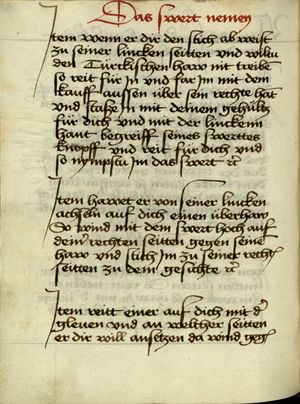 Das swert nemen
Item wenn er dir den stich ab weist
zu seiner lincken seitten und wiltu
den Türckischen haw nit treibē
so reit für in und far im mit dem
knauff aussen über sein rechte hāt
und stosse in mit deinem gehültz
für dich und mit der linckenn
hant begreiff seines swerttes
knopff und reit für dich und
so nympstu im das swert ꝛc
Item hawet er von seiner lincken
achseln auf dich einen überhaw
So wind mit dem swert hoch auf
deinr̄ rechten seitten gegen seinē
haw und stich im zu seiner rechtē
seitten zu dem gesichte ꝛc
Item reitt einer auf dich mit dˀ
gleuen und an welicher seitten
er dir will ansetzen da wind gegē